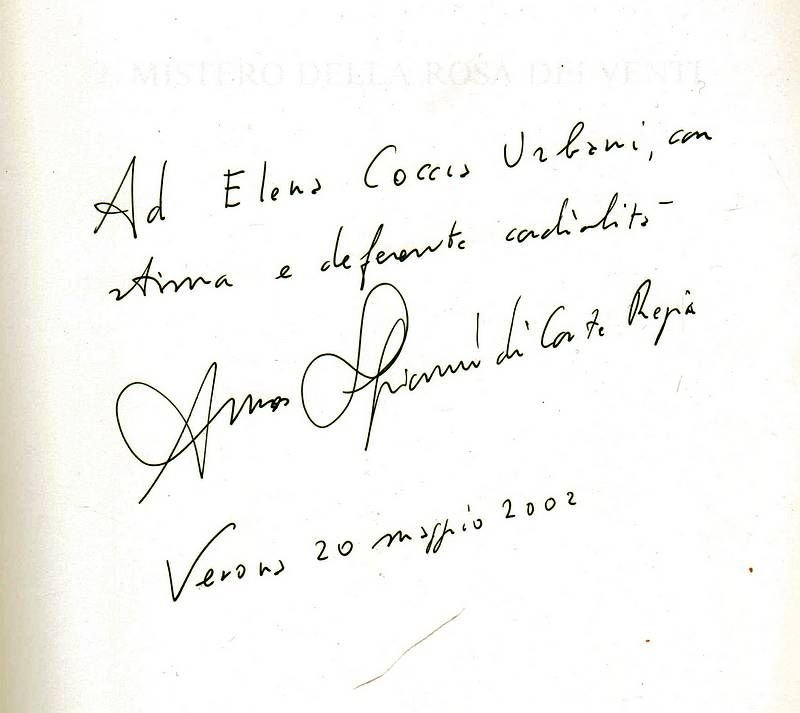 2. MISTERO DELLA ROSA DEI VENTI
Ad Elena Coccia Urbani, con
stima e deferente cordialità
Amos Spiazzi di Corte Regia
Verona 20 maggio 2002